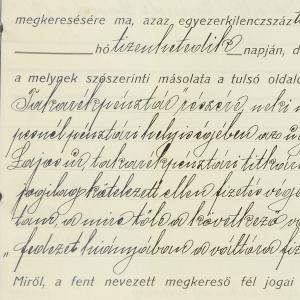 megkeresésére ma, azaz egyezerkilenczszáz
hó tizenhetedik napján, d
a melynek szószerinti másolata a tulsó oldalo
Takarékpénztár" részére neki s
pesnél pénztári helyiségében az ü
Lajos úr takarékpénztári titkár
jogilag kötelezett ellen fizetés vége
tam, a mire tőle a következő vá
„fedezet hiányában a váltóra fiz
Miről, a fent nevezett megkereső fél jogai